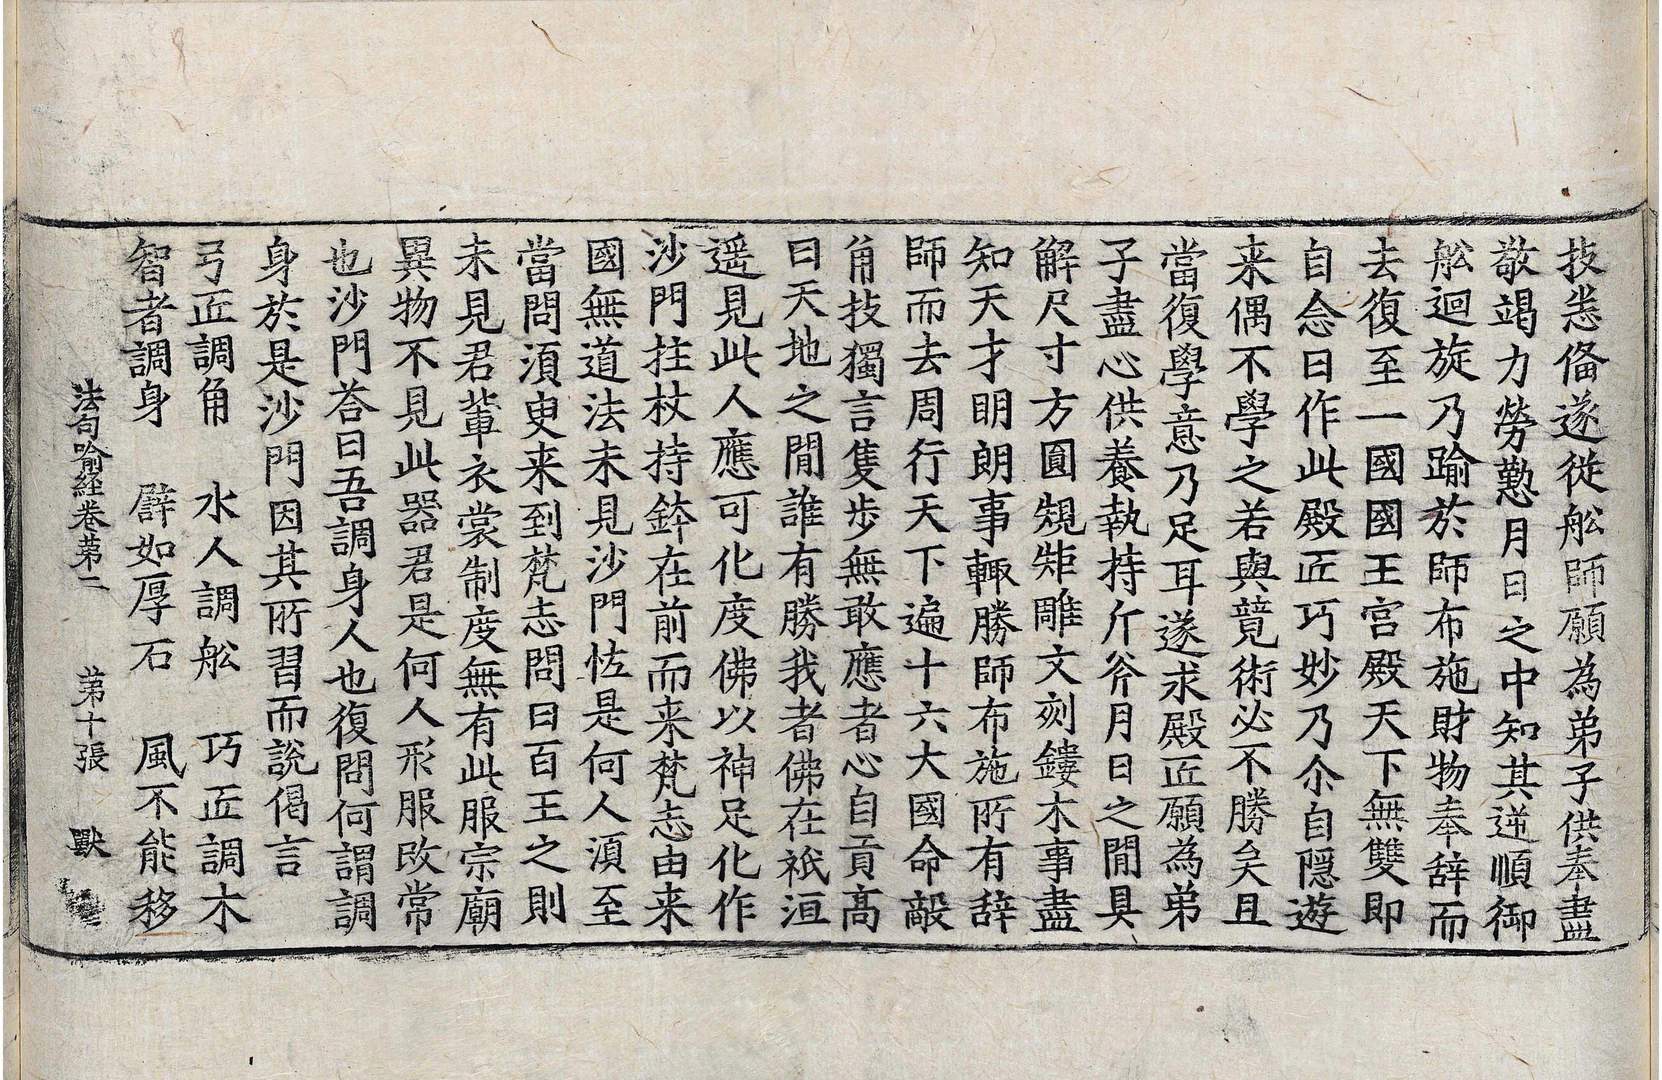 技悉俻遂從舩師願為弟子供奉盡
敬竭力勞懃月日之中知其逆順御
舩迴旋乃踰於師布施財物奉辞而
去復至一國國王宮殿天下無雙即
自念曰作此殿匠巧妙乃尒自隱遊
来偶不學之若與競術必不勝矣且
當復學意乃足耳遂求殿匠願為弟
子盡心供養執持斤斧月日之閒具
解尺寸方圓䂓矩雕文刻鏤木事盡
知天才明朗事輙勝師布施所有辞
師而去周行天下遍十六大國命敵
角技獨言隻步無敢應者心自貢高
曰天地之閒誰有勝我者佛在祇洹
遥見此人應可化度佛以神足化作
沙門拄杖持鉢在前而来梵志由来
國無道法未見沙門恠是何人湏至
當問湏臾来到梵志問曰百王之則
未見君輩衣裳制度無有此服宗廟
異物不見此器君是何人形服改常
也沙門荅曰吾調身人也復問何謂調
身於是沙門因其所習而說偈言
弓匠調角　水人調舩　巧匠調木
智者調身　譬如厚石　風不能移
法句喻経卷第二　第十張　獸